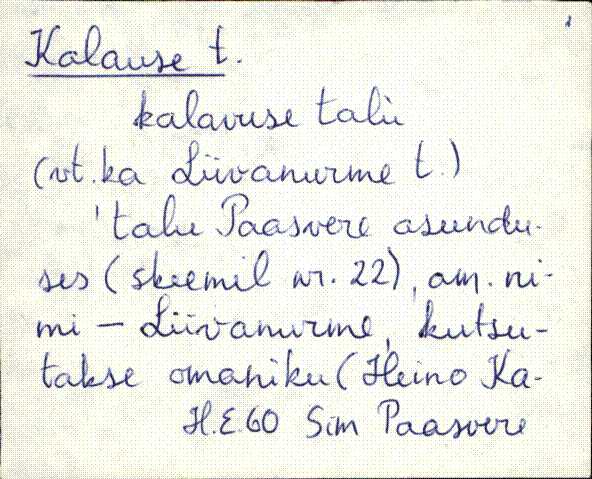 Kalause t.
kalavuse talù
(vt. ka Liivanurme t.)
'talu Paasvere asundu-
ses (skeemil nr. 22), am. ni-
mi - Liivanurme, kutsu-
takse omaniku (Heino Ka-
H.E. 60 Sim Paasvere